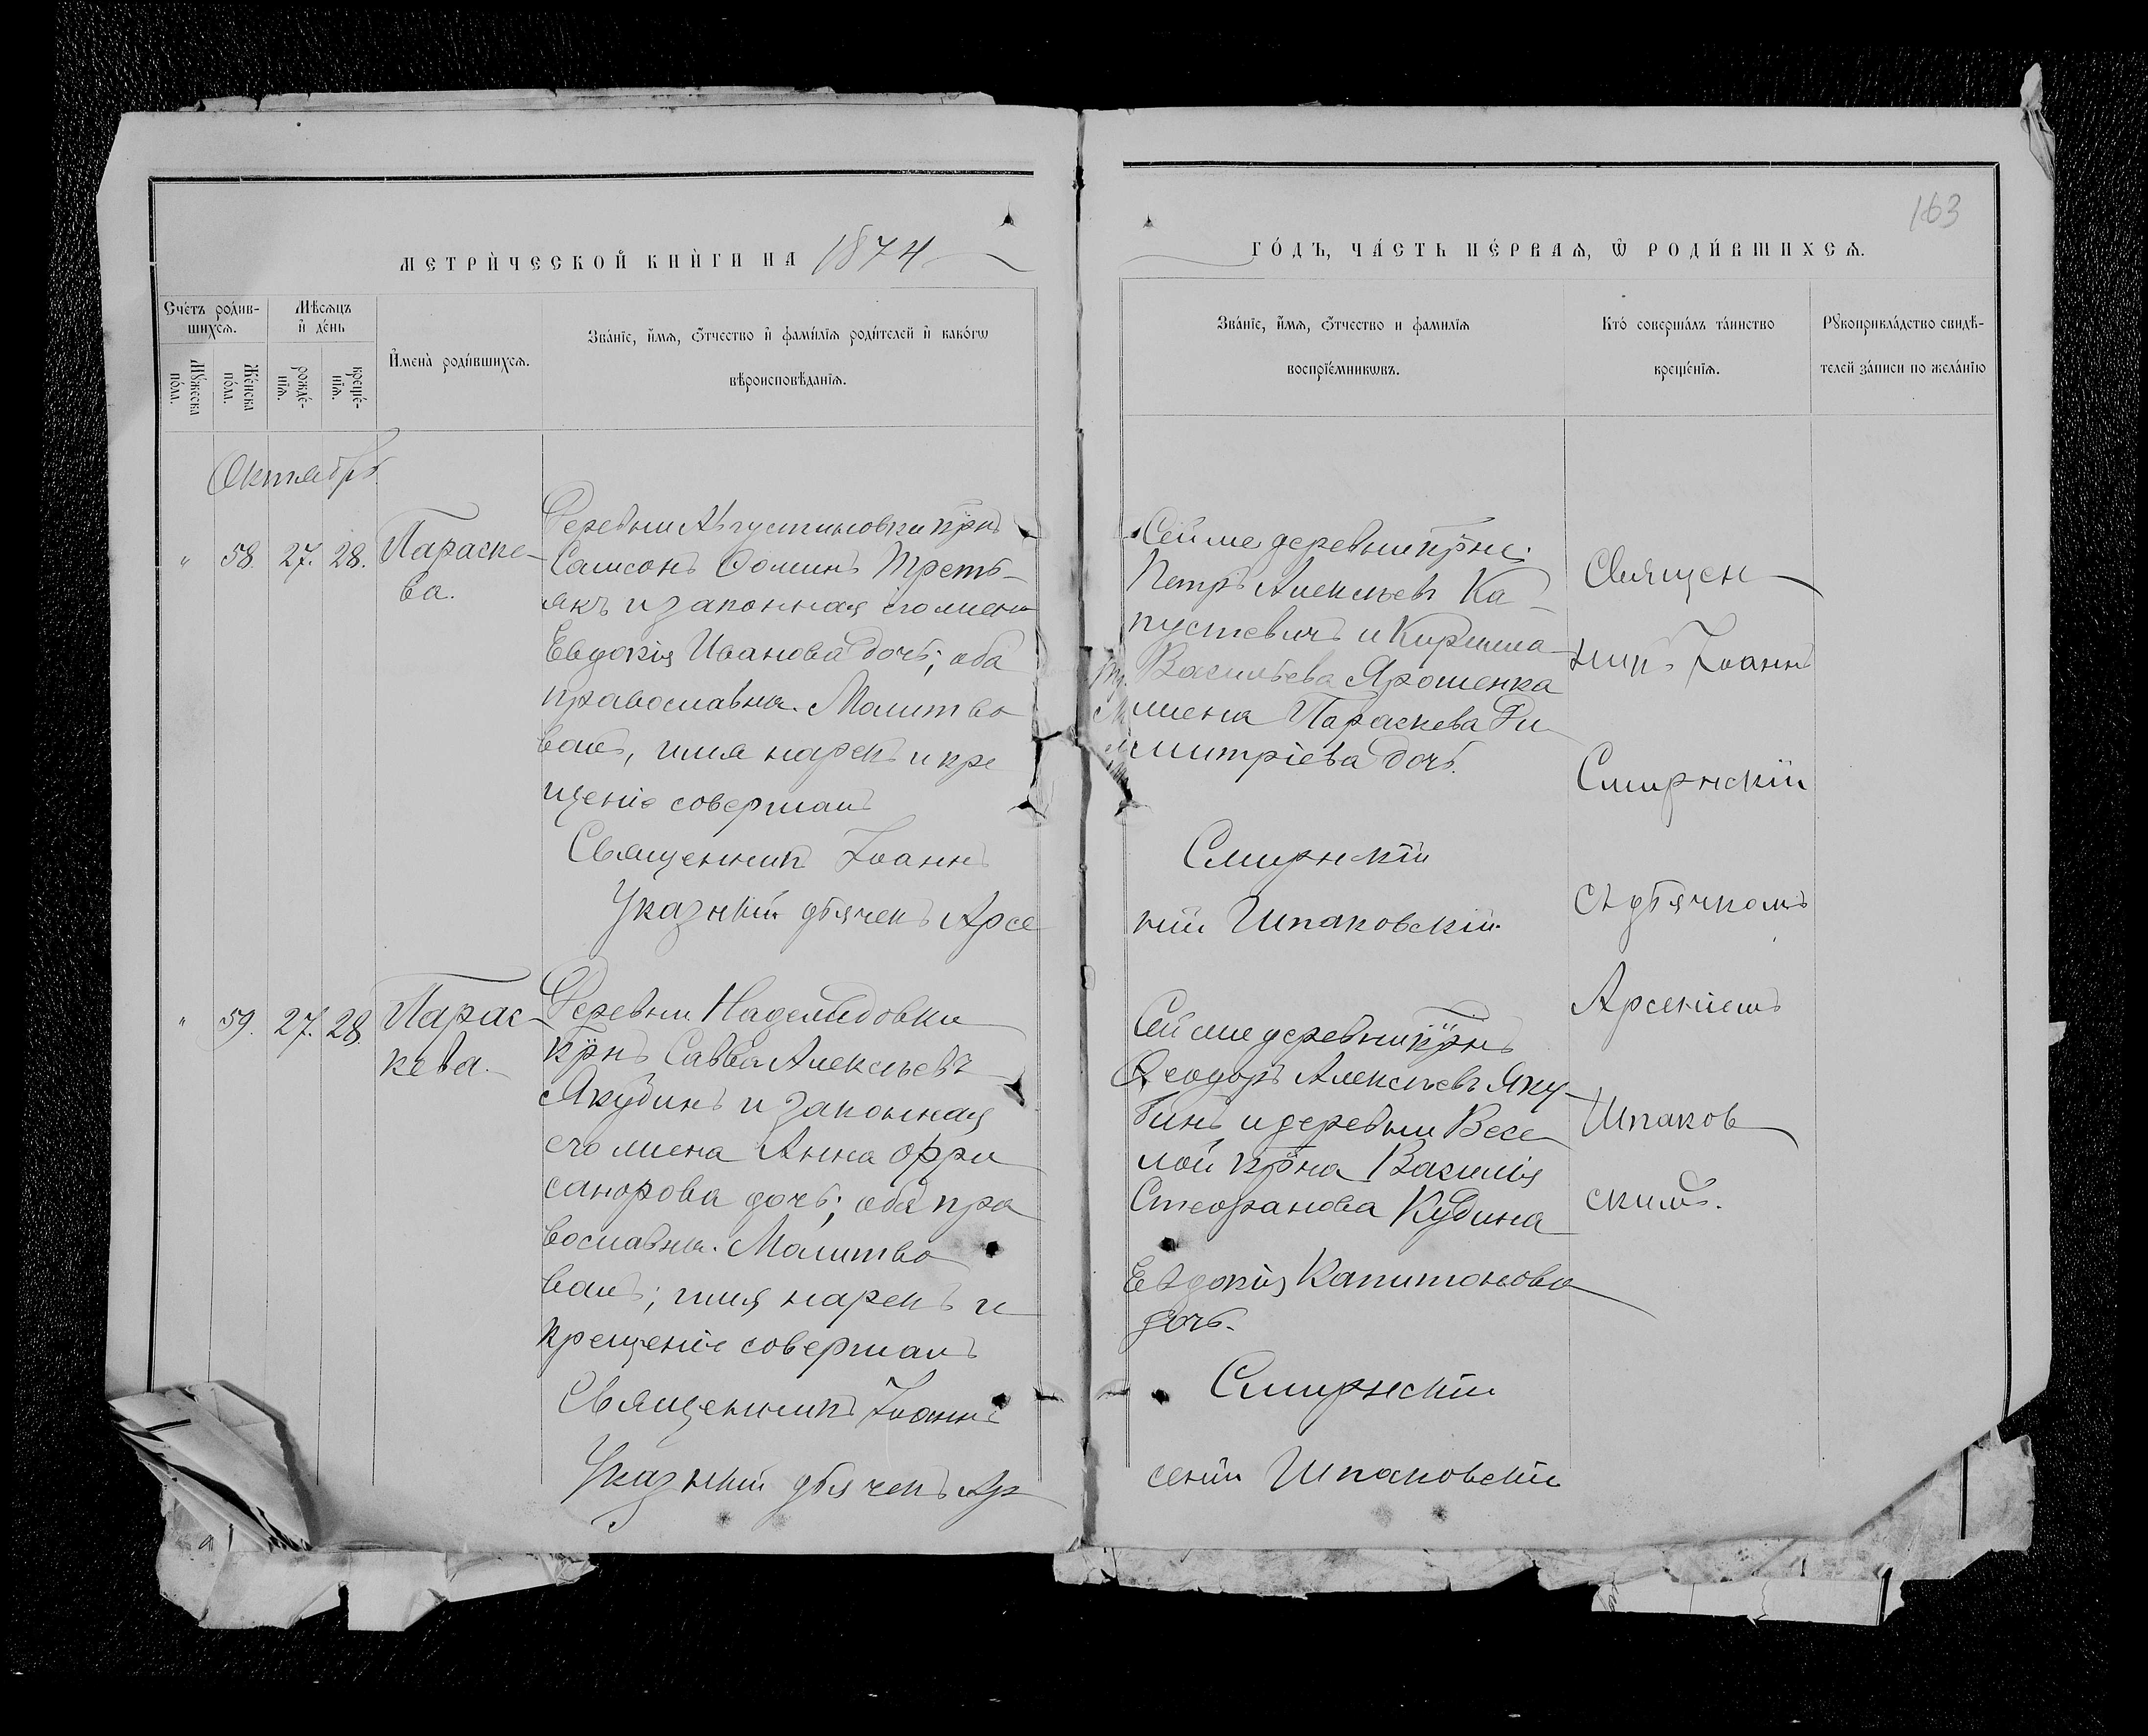 163
МЕТРИ́ЧЕСКОЙ КНИ́ГИ НА 1874
ГО́ДЪ, ЧА́СТЬ ПЕ́РВАѦ, Ѡ҆ РОДИ́ВШИХСѦ.
Сче́тъ роди́в-
шихсѧ.
Мѣсѧцъ
и҆ де́нь
Мꙋ́жеска
по́ла.
Же́нска
по́ла.
рожде́-
нїѧ.
креще́-
нїѧ.
И҆мена̀ роди́вшихсѧ.
Зва́нїе, и҆́мѧ, ѻ҆́тчество и҆ фами́лїѧ роди́телей и҆ како́гѡ
вѣроисповѣ́данїѧ.
Зва́нїе, и҆́мѧ, ѻ҆́тчество и фамилїѧ
воспрїе́мникѡвъ.
Кто́ соверша́лъ та́инство
креще́нїѧ.
Рꙋкоприкла́дство свидѣ́-
телей за́писи по жела́нїю
Октябрь
" 58. 27. 28.
Параске-
ва.
Деревни Августиновки крнъ
Самсонъ Ѳоминъ Треть-
якъ и законная его жена
Евдокія Иванова дочь; оба
православны. Молитво
валъ, имя нарекъ и кре
щеніе совершалъ
Священникъ Іоаннъ
Смирнскій
Указный дьячекъ Арсе
ній Шпаковскій.
Сей же деревни крне:
Петръ Алексѣевъ Ка-
пустевичъ и Кирилла
Васильева Ярошенка
жена Параскева Ди-
митріева дочь.
Священ
никъ Іоаннъ
Смирнскій
съ дьячкомъ
Арсеніемъ
Шпаков
скимъ.
" 59. 27. 28.
Парас-
кева.
Деревни Надеждовки
крнъ Савва Алексѣевъ
Якубинъ и законная
его жена Анна
дочь; оба пра
вославны. Молитво
валъ; имя нарекъ и
крещеніе совершалъ
Священникъ Іоаннъ
Смирнскій
Указный дьячекъ Ар
сеній Шпаковскій
Сей же деревни крнъ
Ѳеодоръ Алексѣевъ Яку-
бинъ и деревни Весе
лой крна Василія
Стефанова Кубина
Евдокія Капитонова
дочь.